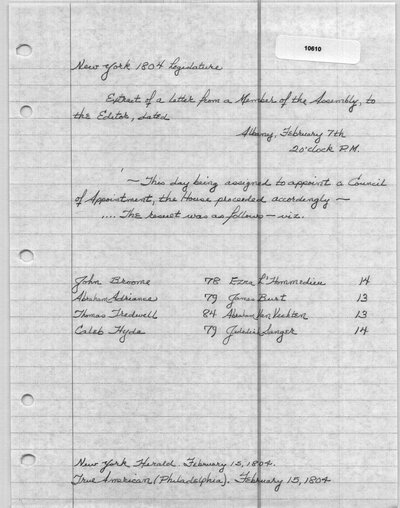 10610
New York 1804 Legislature
Extract of a letter from a Member of the Assembly, to
the Editor, dated
Albany, February 7th
2 o'clock P.M.
'— This day being assigned to appoint a Council
of Appointment, the House proceeded accordingly —
.... The result was as follows — viz.
John Broome 78 Ezra L'Hommedieu 14
Abraham Adriance 79 James Burt 13
Thomas Tredwell 84 Abraham Van Vechten 13
Caleb Hyde 79 Jedediah Sanger 14
New York Herald. February 15, 1804.
True American (Philadelphia). February 15, 1804